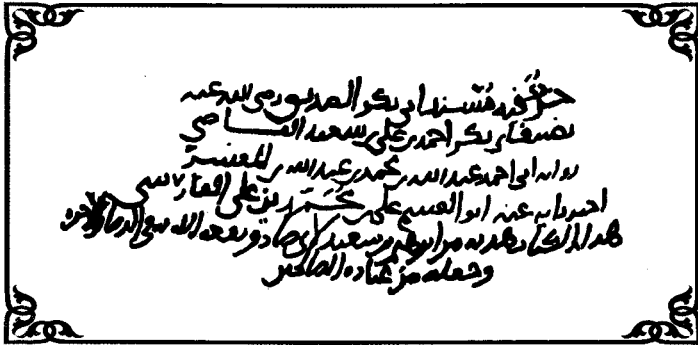 جزء فيه مسند ابي بكر الصديق رضي الله عنه
تصنيف ابي بكر احمد بن علي بن سعيد القاضي
رواية ابي احمد عبد الله بن محمد بن عبد الله بن المفسر
اخبرنا به عنه ابو القسم علي بن محمد بن علي الفارسي
هذا الكتاب بن ابراهيم بن سعيد نفعه الله به في الدنيا والاخرة
وجعله من عباده الصالحين